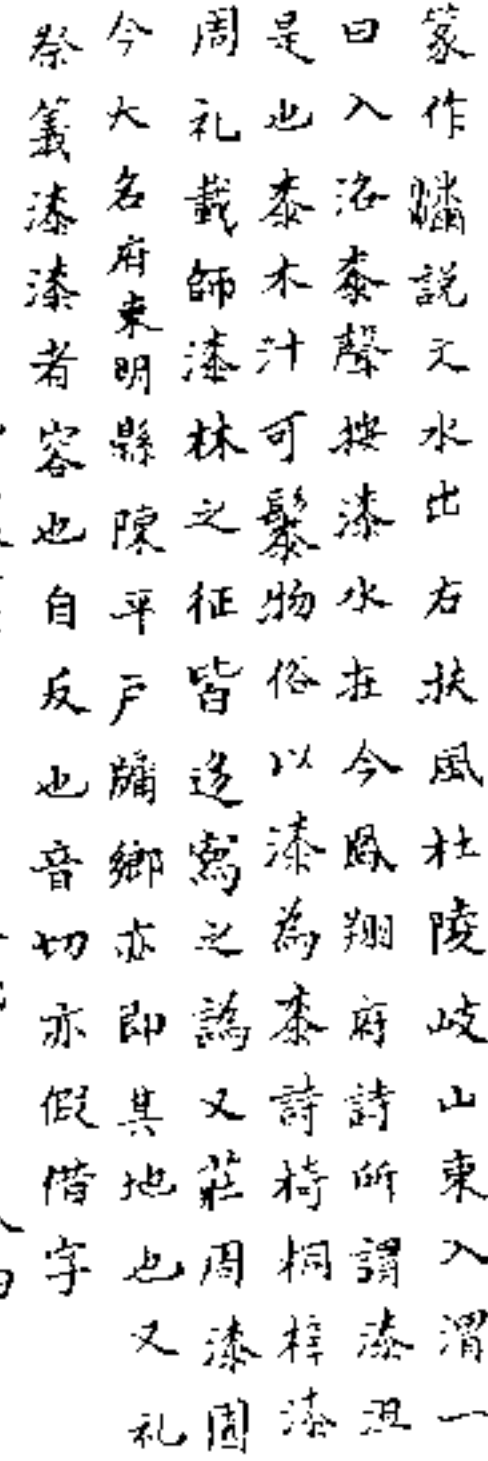 篆作㯃說文水出右扶風杜陵岐山東入渭一
曰入洛桼聲按漆水在今鳳翔府詩所謂漆沮
是也桼木汁可䰍物俗以漆為桼詩椅桐梓漆
周礼載師漆林之征皆迻寫之譌又莊周漆園
今大名府東明縣陳平戶牖鄉亦即其地也又礼
祭義漆漆者容也自反也音切亦假借字